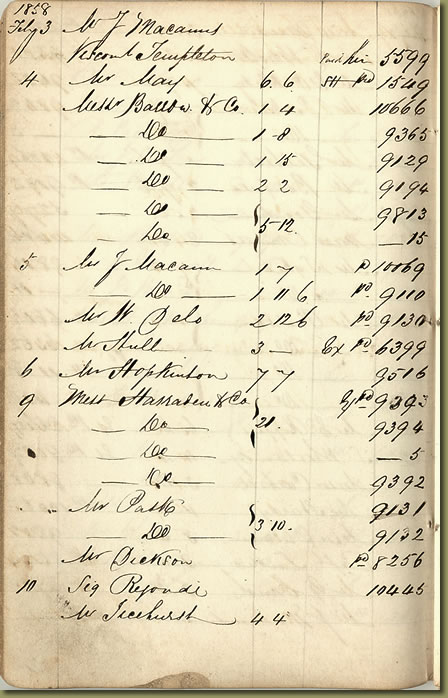 1858
Feby 3 Mr J Macann
Viscount Templeton 5599
4 Mr May 6 . 6 . Pd 1549
Messrs Balbow & Co . 1 4 10666
— Do — 1 - 8 9365
— Do — 1 15 9129
— Do — 2 2 9194
— Do — 9813
— Do — 5 - 12 . — 15
5 Mr J Macann 1 - 7 Pd 10069
— Do — 1 11 6 Pd 9110
Mr W Pelo 2 12 6 Pd 9130
Mr Hull 3 — Ex Pd 6399
6 Mr Hopkinson 7 7 9516
9 Messrs Haskaden & Co Pd 9393
— Do — 21 . 9394
— Do — — 5
— Do — 9392
Mr Pask 9131
— Do — 3 10 . 9132
Mr Dickson Pd 8256
10 Sig Regondi 10445
Mr Ticehurst 4 4